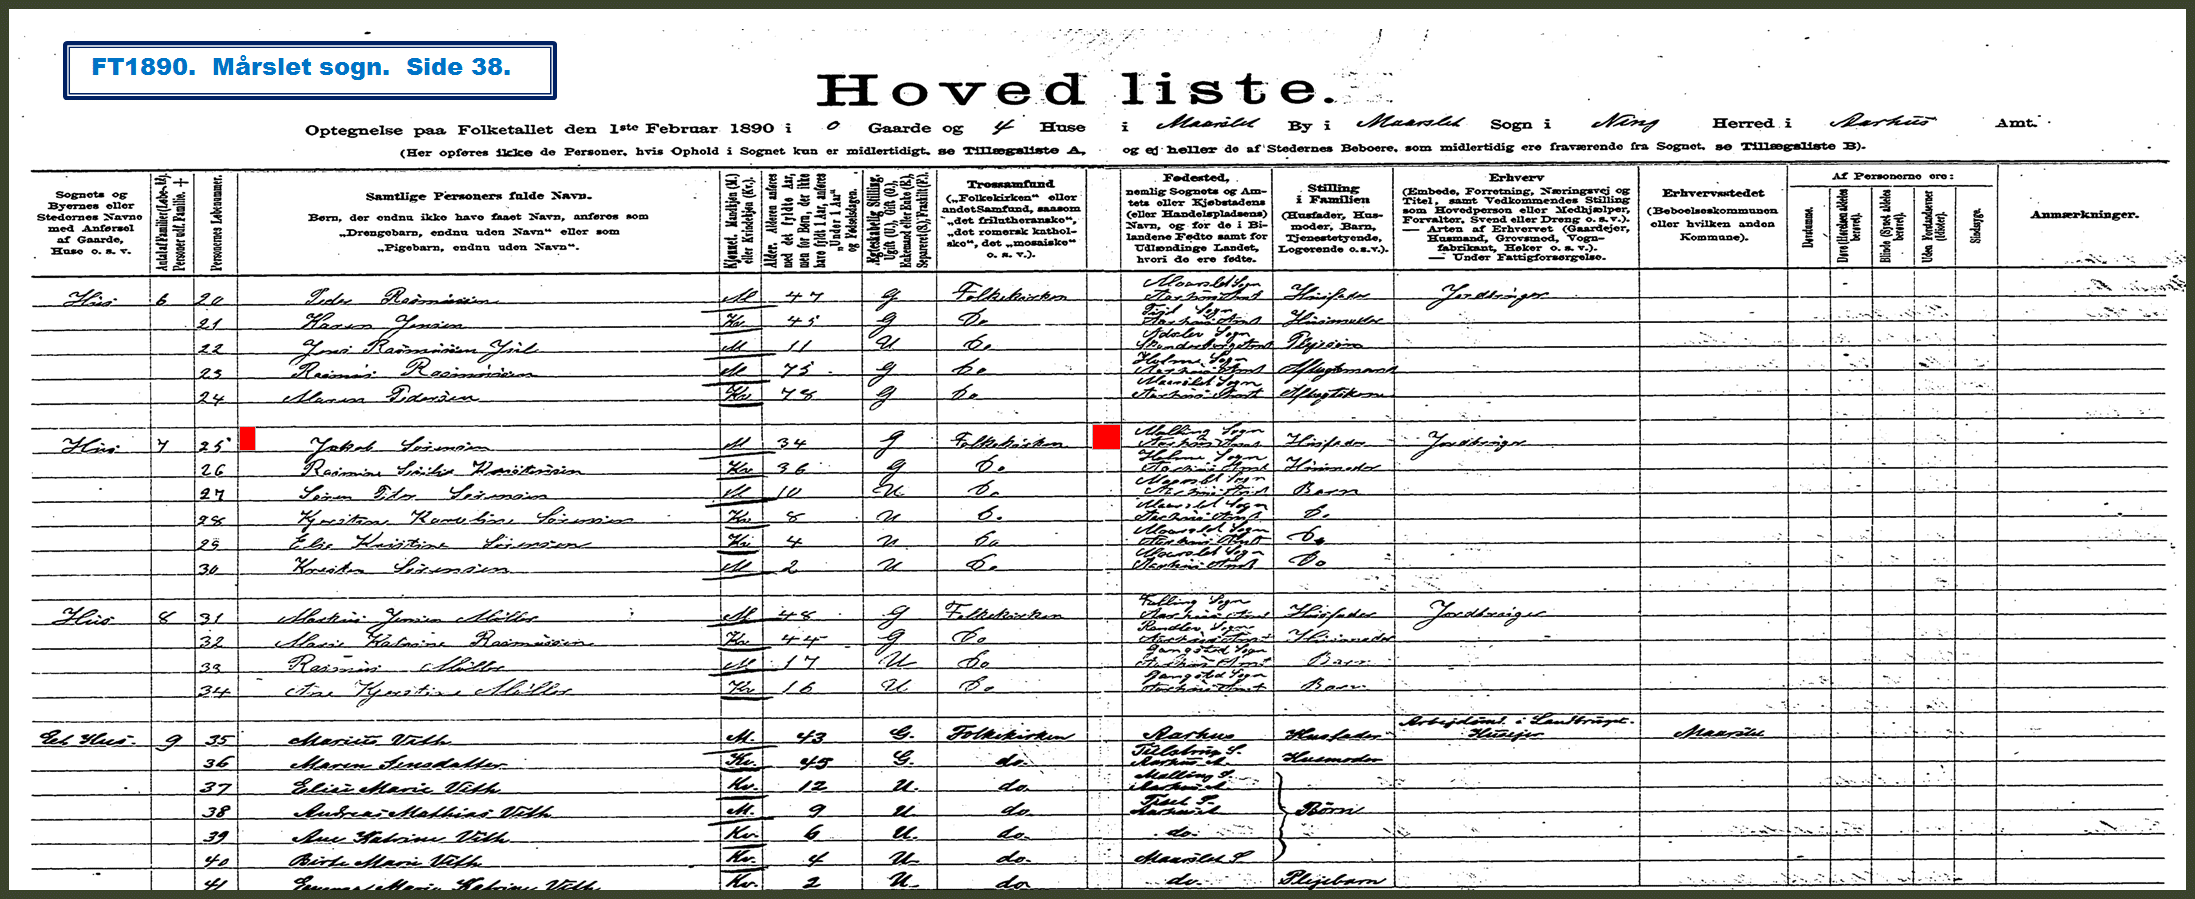 FT1890. Mårslet sogn. Side 38.
Hovedliste.
Optegnelse paa Folketallet den 1ste Februar 1890 i 0 Gaarde og 4 Huse i Maarslet By i Maarslet Sogn i Ning Herred i Aarhus Amt.
(Her opføres ikke de Personer, hvis Ophold i Sognet kun er midlertidigt, se Tillægsliste A, og ej heller de af Stedernes Beboere, som midlertidig ere fraværende fra Sognet, se Tillægsliste B).
Sognets og Byernes eller Stedernes Navne med Anførsel af Gaarde, Huse o. s. v.
Personernes Løbenummer.
Samtlige Personers fulde Navn.
Børn, der endnu ikke have faaet Navn, anføres som „Drengebarn, endnu uden Navn“ eller som „Pigebarn, endnu uden Navn“.
Kjønnet. Mandkjøn (M.) eller Kvindekjøn (Kv.).
Alder. Alderen anføres med det fyldte Aar, men for Børn, der ikke have fyldt 1 Aar, anføres „Under 1 Aar“ og Fødselsdagen.
Ægteskabelig Stilling. Ugift (U.), Gift (G.), Enkemand eller Enke (E.), Separeret (S.), Fraskilt (F.).
Trossamfund („Folkekirken“ eller andet Samfund, saasom „det frilutheranske“, „det romersk katholske“, det „mosaiske“ o. s. v.).
Fødested, nemlig Sognets og Amtets eller Kjøbstadens (eller Handelspladsens) Navn, og for de i Bilandene Fødte samt for Udlændinge Landet, hvori de ere fødte.
Stilling i Familien (Husfader, Husmoder, Barn, Tjenestetyende, Logerende o.s.v.).
Erhverv (Embede, Forretning, Næringsvej og Titel, samt Vedkommendes Stilling som Hovedperson eller Medhjælper, Forvalter, Svend eller Dreng o. s. v.). — Arten af Erhvervet (Gaardejer, Husmand, Grovsmed, Vognfabrikant, Høker o. s. v.). — Under Fattigforsørgelse.
Erhvervsstedet (Beboelseskommunen eller hvilken anden Kommune).
Af Personerne ere:
Døvstumme.
Døve (Hørelsen aldeles berøvet).
Blinde (Synet aldeles berøvet).
Uden Forstandsevner (Idioter).
Sindssyge.
Anmærkninger.
Hus 6 20 Peder Rasmussen M 47 G Folkekirken Maarslet Sogn Aarhus Amt Husfader Jordbruger
21 Karen Jensen Kv. 45 G Do Sogn Aarhus Amt Husmoder
22 Jens Rasmussen Juul M 11 U Do Adslev Sogn Skanderborg Amt Plejesøn
23 Rasmus Rasmussen M 75 G Do Holme Sogn Aarhus Amt Aftægtsmand
24 Maren Pedersen Kv. 78 G Do Maarslet Sogn Aarhus Amt Aftægtskone
Hus 7 25 Jakob Sørensen M 34 G Folkekirken Malling Sogn Aarhus Amt Husfader Jordbruger
26 Rasmine Kristensen Kv. 36 G Do Holme Sogn Aarhus Amt Husmoder
27 Søren Peder Sørensen M 10 U Do Maarslet Sogn Aarhus Amt Barn
28 Kjerstine Karoline Sørensen Kv 8 U Do Maarslet Sogn Aarhus Amt Do
29 Else Kristine Sørensen Kv 4 U Do Maarslet Sogn Aarhus Amt Do
30 Kresten Sørensen M 2 U Do Maarslet Sogn Aarhus Amt Do
Hus 8 31 Markus Jensen Møller M 48 G Folkekirken Falling Sogn Aarhus Amt Husfader Jordbruger
32 Marie Katrine Rasmussen Kv 44 G Do Randlev Sogn Aarhus Amt Husmoder
33 Rasmus Møller M 17 U Do Gangsted Sogn Aarhus Amt Barn
34 Ane Kjerstine Møller Kv 16 U Do Gangsted Sogn Aarhus Amt Barn
Eet Hus. 9 35 Marius Veth M. 43 G. Folkekirken Aarhus Husfader Arbejdsmd. i Landbruget. Husejer Maarslet
36 Maren Jensdatter Kv. 45 G. do. Aarhus A. Husmoder
37 Elise Marie Veth Kv. 12 U. do. Malling S. Aarhus A.
38 Andreas Mathias Veth M. 9 U. do. Tiset S. Aarhus A. Børn
39 Ane Katrine Veth Kv. 6 U. do. do.
40 Birte Marie Veth Kv. 4 U. do. Maarslet S.
41 Marie Katrine Veth Kv. 2 U. do do. Plejebarn